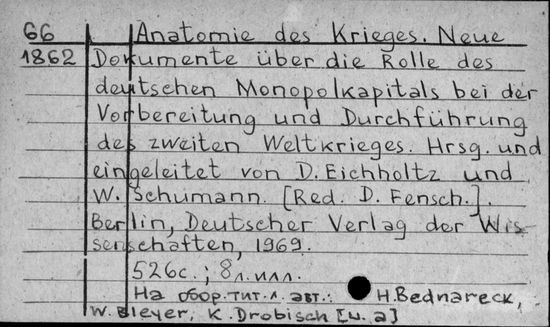 66 Anatomie des Krieges. Neue
1862 Dokumente über die Rolle des
deutschen Monopolkapitals bei der
Vorbereitung und Durchführung
des zweiten Weltkrieges. Hrsg. und
eingeleitet von D. Eichholtz und
W. Schumann. [Red. D. Fensch.].
Berlin, Deutscher Verlag der Wis-
senschaften, 1969.
526с.; 8л.илл.
На обор.тит.л. авт.: H. Bednareck,
W. Bleyer, K. Drobisch [u. a]